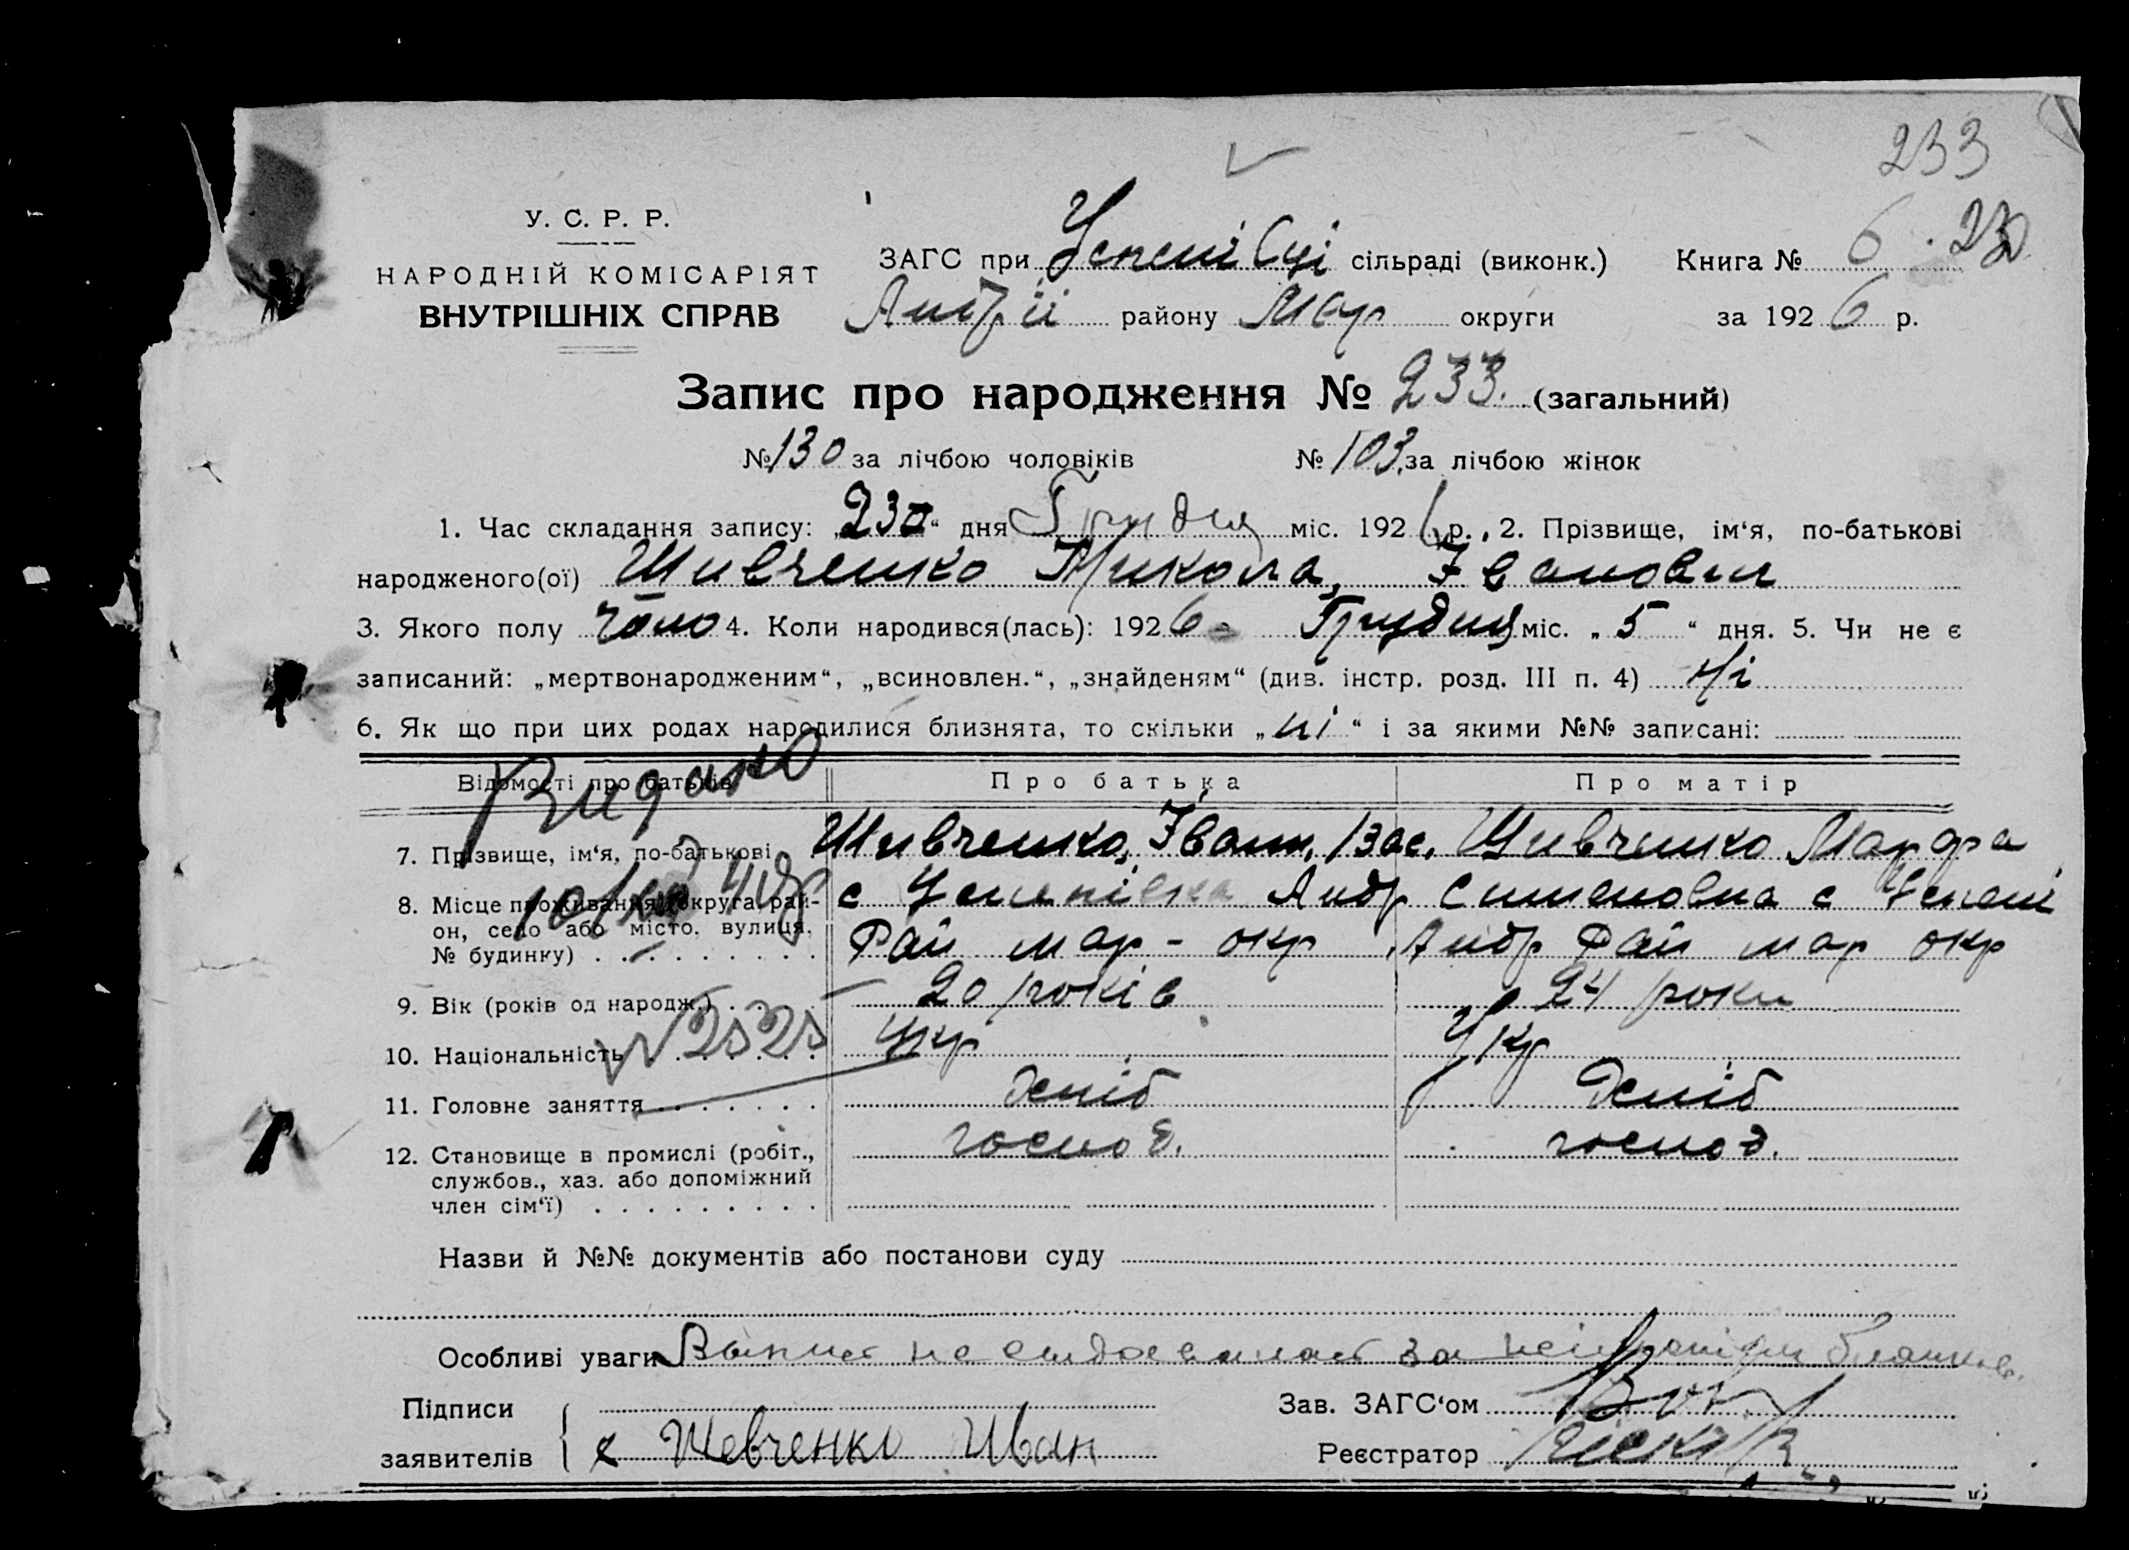 233
У. С. Р. Р.
НАРОДНІЙ КОМІСАРІЯТ
ВНУТРІШНІХ СПРАВ
ЗАГС при сільраді (виконк.) Книга № 6
району Мар округи за 1926 р.
Запис про народження № 233. (загальний)
№ 130 за лічбою чоловіків № 103 за лічбою жінок
1. Час складання запису: „23“ дня Грудня міс. 1926 р., 2. Прізвище, ім‘я, по-батькові
народженого(ої) Шивченко Микола, Іванович
3. Якого полу чоло 4. Коли народився(лась): 1926 Грудня міс. „5“ дня. 5. Чи не є
записаний: „мертвонародженим“, „всиновлен.“, „знайденям“ (див. інстр. розд. III п. 4) Ні
6. Як що при цих родах народилися близнята, то скільки „ні“ і за якими №№ записані:
Відомості про батьків Про батька Про матір
Видано
7. Прізвище, ім‘я, по-батькові Шивченко, Іван, Шивченко Марфа
8. Місце проживання (округа, рай-
он, село або місто, вулиця,
№ будинку)
с Андр Симоновна с Успені
Рай мар - окр Андр Рай мар окр
9. Вік (років од народж.) 20 років 24 роки
№ 2525
10. Національність Укр Укр
11. Головне заняття хліб хліб
12. Становище в промислі (робіт.,
службов., хаз. або допоміжний
член сім‘ї)
господ. господ.
Назви й №№ документів або постанови суду
Особливі уваги не за бланков.
Підписи
заявителів Шевченко Иван
Зав. ЗАГС‘ом
Реєстратор